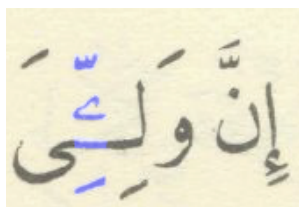 إِنَّ وَلِـِّۧىَ